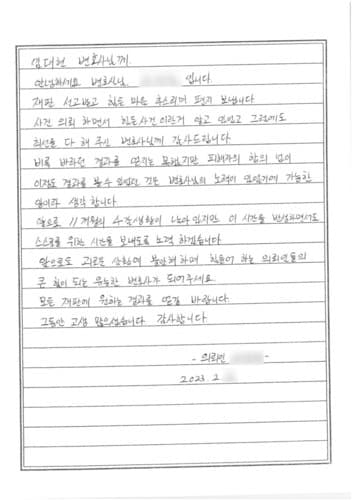 김대현 변호사님께.
안녕하세요 변호사님. 입니다.
재판 선고받고 힘든 마음 추스리며 편지 보냅니다
사건 의뢰 하면서 힘든사건이란거 알고 있었고 그럼에도
최선을 다 해 주신 변호사님께 감사드립니다.
비록 바라던 결과를 얻지는 못했지만 피해자의 합의 없이
이정도 결과를 볼수 있었던 것은 변호사님의 노력이 있었기에 가능한
일이라 생각합니다
앞으로 11개월의 수감생활이 남아있지만 이 시간을 반성하면서도
스스로를 위한 시간을 보내도록 노력 하겠습니다
앞으로도 괴로운 상황에 불안해하며 힘들어 하는 의뢰인들의
큰 힘이 되는 유능한 변호사가 되어주세요.
모든 재판에 원하는 결과를 얻길 바랍니다.
그동안 고생 많으셨습니다 감사합니다.
- 의뢰인 -
2023. 2